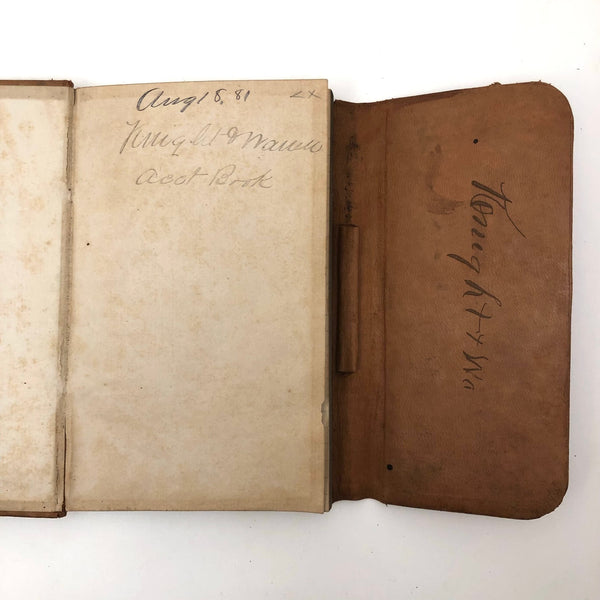 Aug 18, 81
Knight &
Acct Book
Knight + Wa